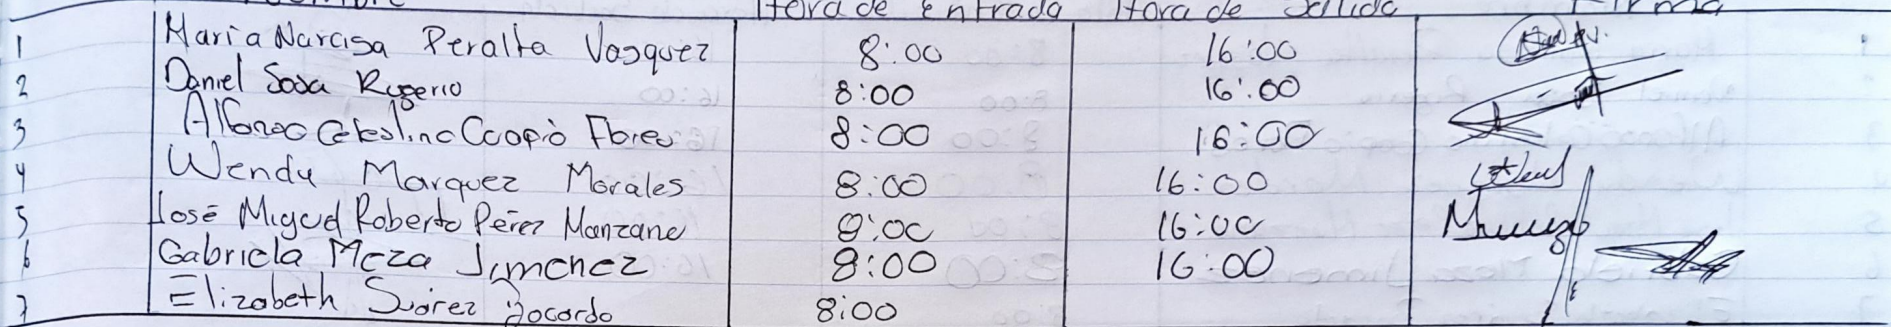 Nombre Hora de Entrada Hora de Salida Firma
1 Maria Narcisa Peralta Vasquez 8:00 16:00
2 Daniel Sosa Rugerio 8:00 16:00
3 Alfonso Celestino Ocopio Flores 8:00 16:00
4 Wendy Marquez Morales 8:00 16:00
5 José Miguel Roberto Pérez Manzano 8:00 16:00
6 Gabriela Meza Jimenez 8:00 16:00
7 Elizabeth Suárez 8:00